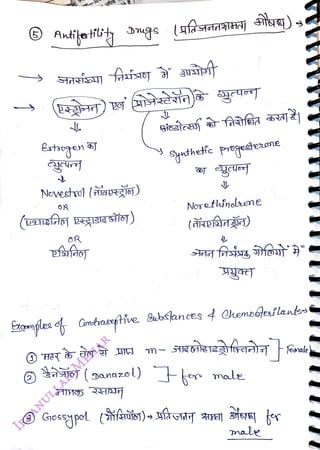 ⑤ Antifertility Drugs (प्रतिजननक्षमता औषध)
→ जनसंख्या नियंत्रण में उपयोगी
→ एस्ट्रोजन एवं प्रोजेस्टेरॉन के व्युत्पन्न
→ अंडोत्सर्ग को निरोधित करता है।
Estrogen का
व्युत्पन्न
Synthetic progesterone
का व्युत्पन्न
Novestrol (नॉवएस्ट्रॉल)
OR
(एथाइनिल एस्ट्राडाइऑल)
OR
Norethindrone
(नॉरएथिनड्रॉन)
जनन नियंत्रक गोलियों में
प्रयुक्त
Examples of Contraceptive Substances & Chemosterilants→
① मटर के तेल से प्राप्त m-जाइलोहाइड्रोक्विनोन] Female
② डैनेजॉल (Danazol)
नामक रसायन ]- for male
③ Gossypol (गॉसिपॉल) → प्रतिजनन क्षमता औषध for
male
IRFANULLAH MEHAR